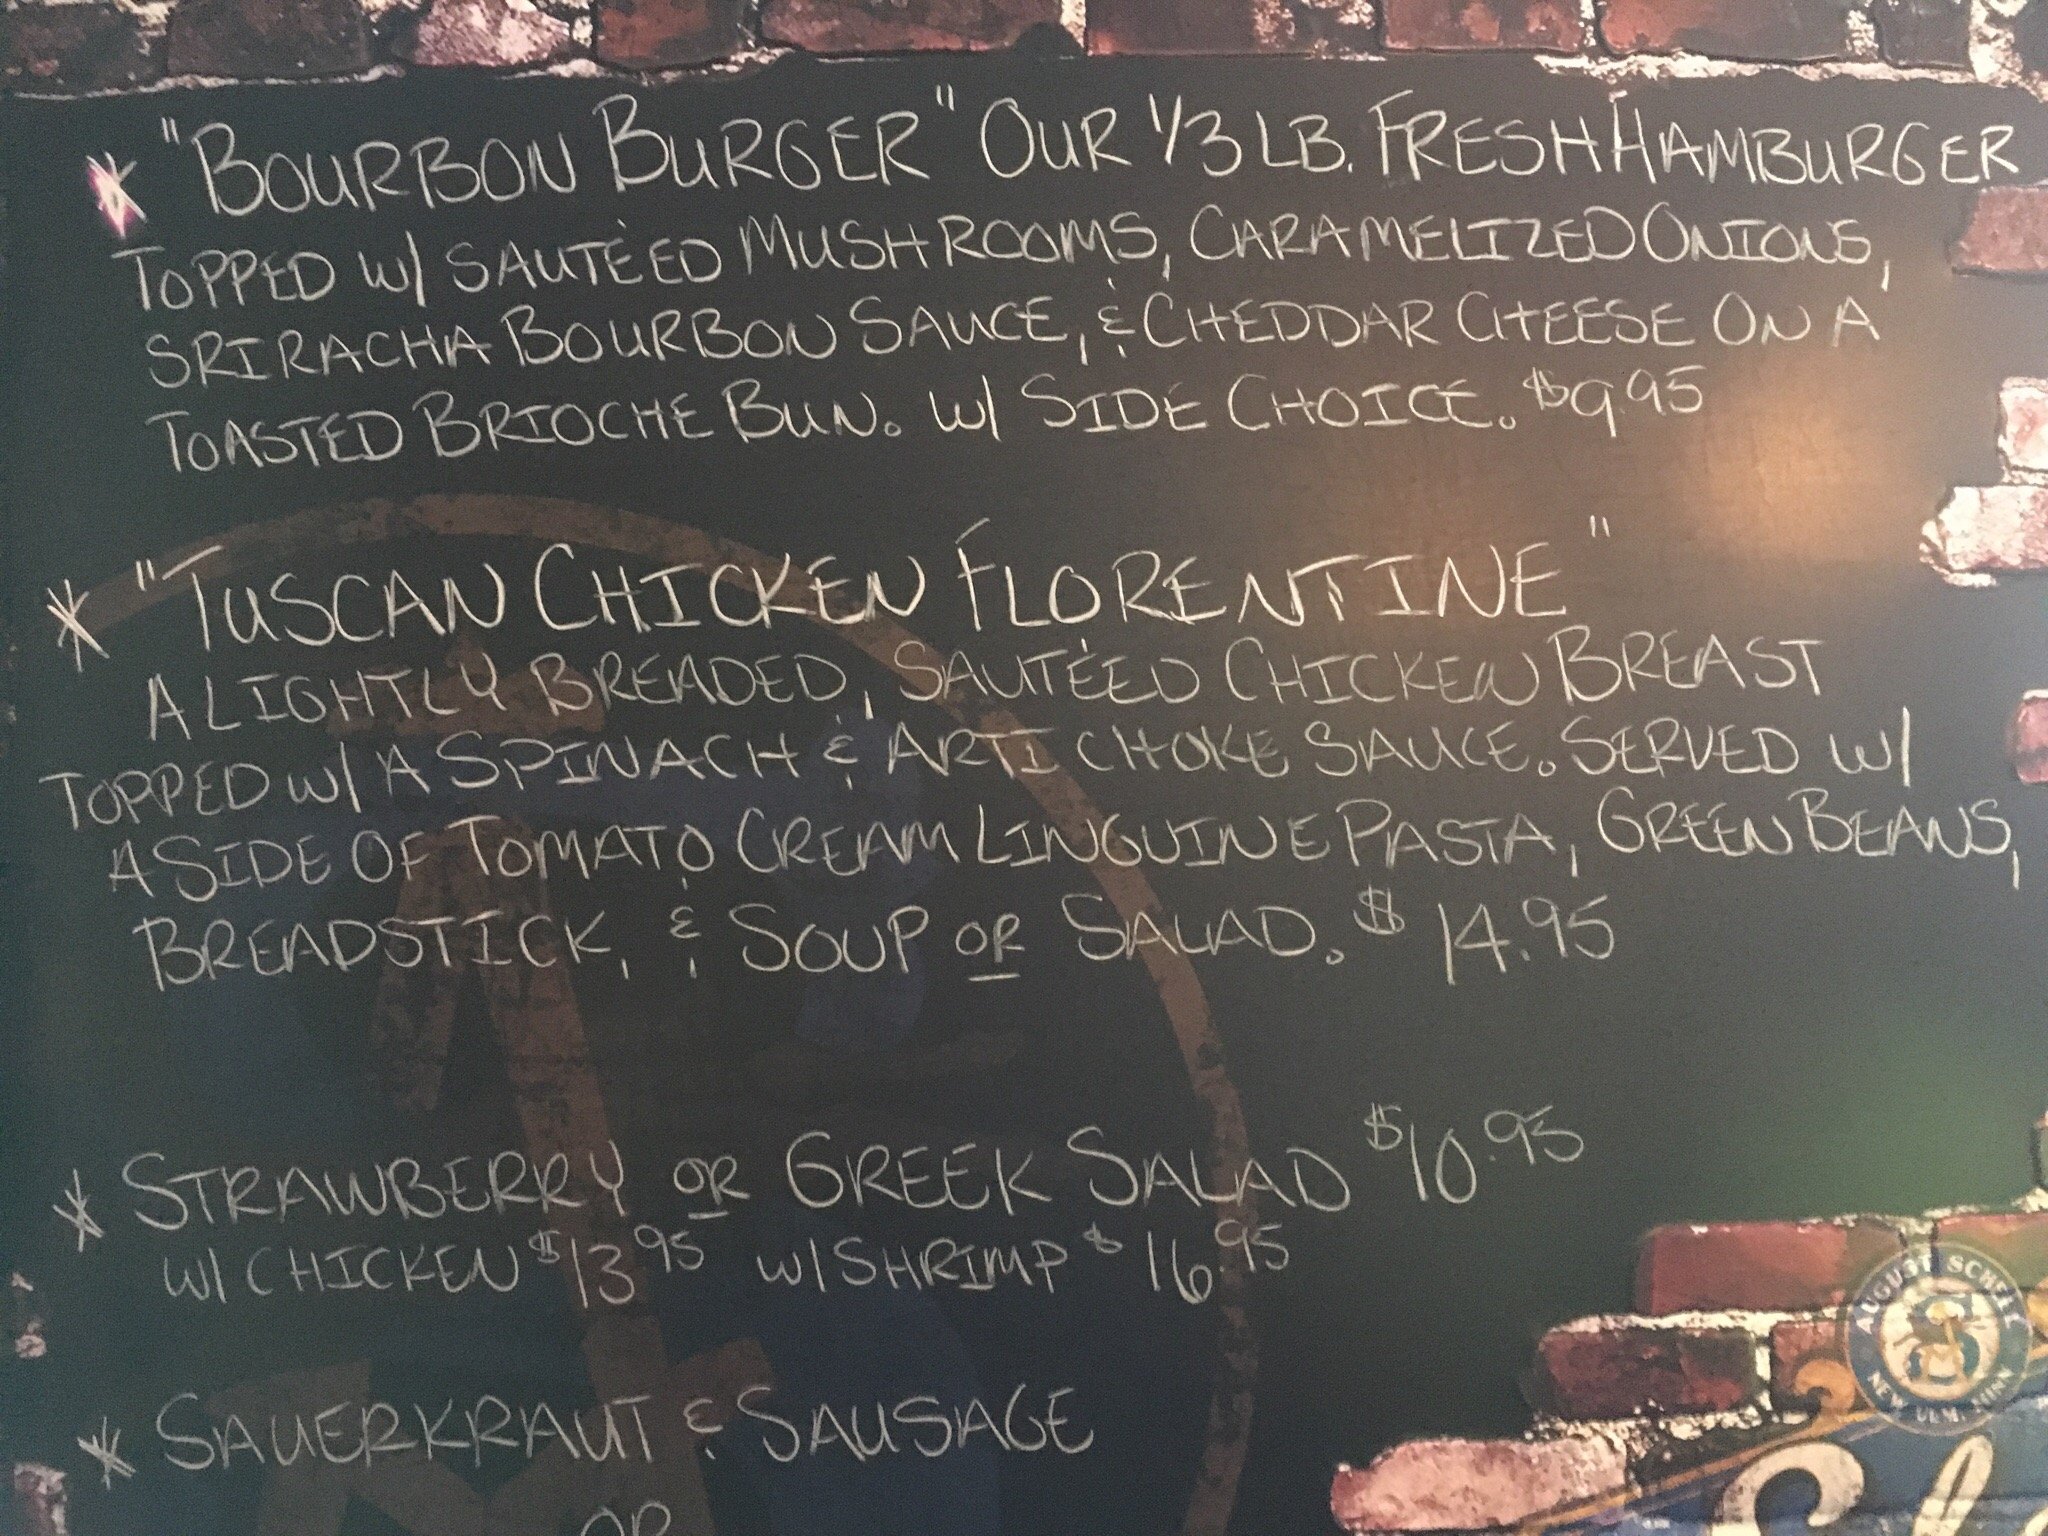 * "BOURBON BURGER" OUR 1/3 LB. FRESH HAMBURGER
TOPPED W/ SAUTÉED MUSHROOMS, CARAMELIZED ONIONS,
SRIRACHA BOURBON SAUCE, & CHEDDAR CHEESE ON A
TOASTED BRIOCHE BUN. W/ SIDE CHOICE. $9.95
* "TUSCAN CHICKEN FLORENTINE"
A LIGHTLY BREADED, SAUTÉED CHICKEN BREAST
TOPPED W/ A SPINACH & ARTICHOKE SAUCE. SERVED W/
A SIDE OF TOMATO CREAM LINGUINE PASTA, GREEN BEANS,
BREADSTICK, & SOUP OR SALAD. $14.95
* STRAWBERRY OR GREEK SALAD $10.95
W/ CHICKEN $13.95 W/ SHRIMP $16.95
* SAUERKRAUT & SAUSAGE
OR
AUGUST SCHELL
NEW ULM, MINN